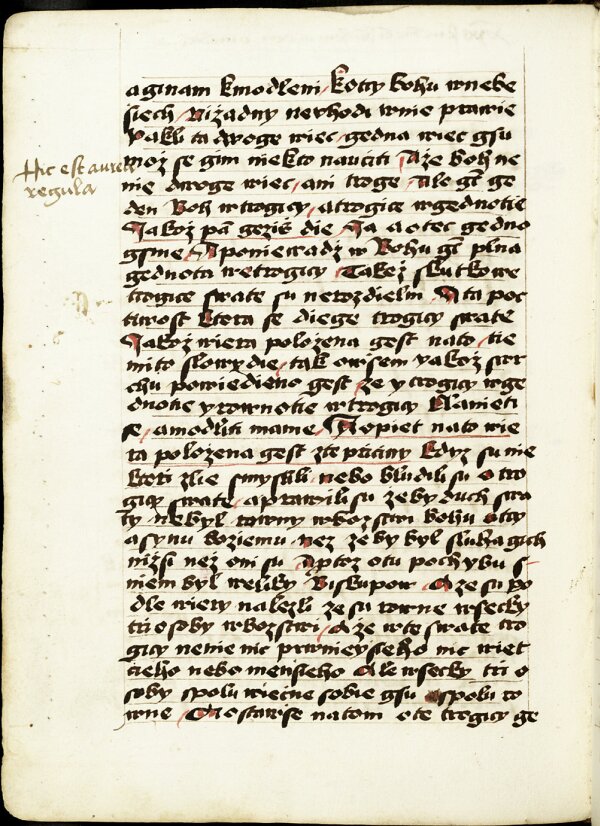 aginam kmodleni kotcy bohu wnebe
siech Nižadny newhodi wnie prawie
yakli ta dwoge wiec gedna wiec gsu
mož se gim niekto nauciti A že boh ne
Hic est aurea
regula
nie dwoge wiec ani troge Ale gt ge
den Boh wtrogicy atrogice wgednotie
Jakož pan gezis die Ja aotec gedno
gsme A poniewadž w Bohu gt plna
gednota wetrogicy Takež skutkowe
trogice swate su nerozdielni A ta poc
tiwost ktera se diege trogicy swate
Jakož wiera položena gest nato tie
mito slowy die tak owsem yakož swr
chu powiedieno gest že y trogicy wge
dnotie y rownotie wtrogicy Namieti
se amodliti mame Yopiet nato wie
ra položena gest ztepriciny kdyz su nie
kteri zlie smyslili nebo bludili su o tro
gicy swate aprawili su žeby duch swa
ty nebyl rowny wbozstwi bohu otcy
asynu boziemu než že by byl sluha gich
nižsi než oni su A protož otu pochybu s
niem byl weliky Biskupow A že su po
dle wiery nalezli že su rowne wsecky
tri osoby wbozstwi A že wte swate tro
gicy nenie nic prwnieysieho nic wiet
cieho nebo mensieho Ale wsecky tri o
soby spolu wiecne sobie gsu aspolu ro
wne A ostawse natom ote trogicy ge